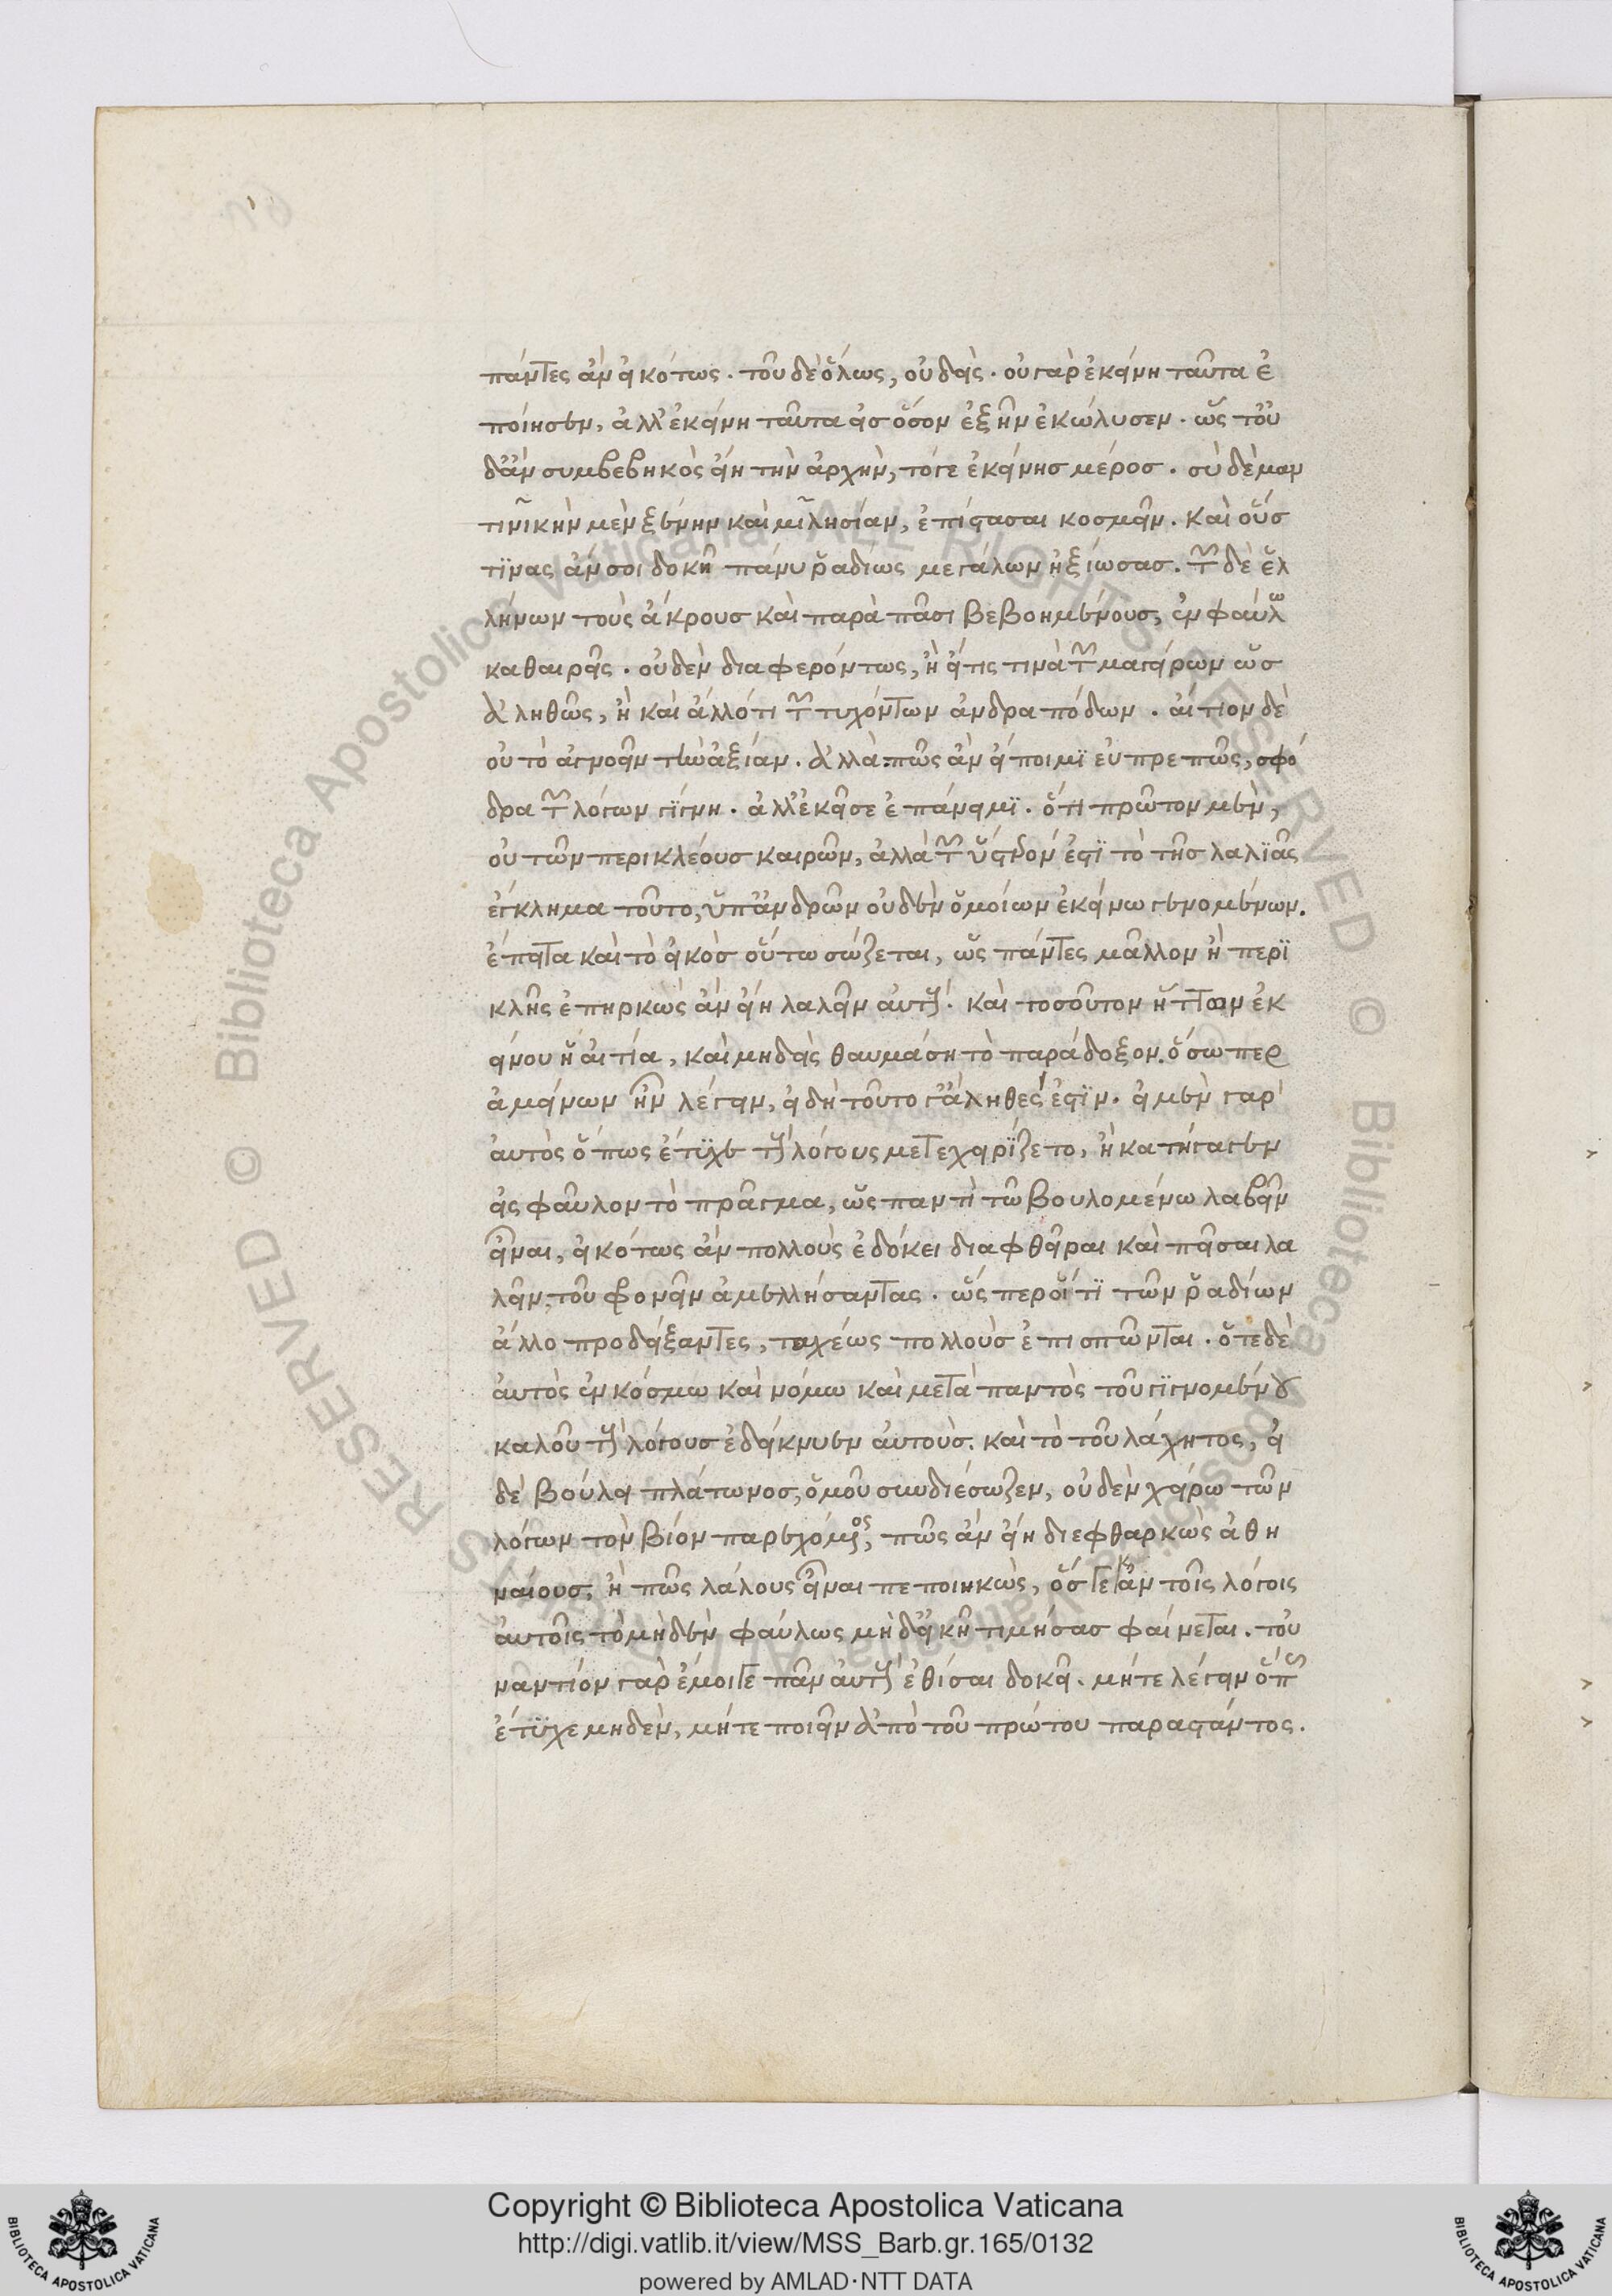 πάντες ἂν εἰκότως. τοῦ δὲ ὅλως, οὐδείς. οὐ γὰρ ἐκείνη ταῦτα ἐ
ποίησεν, ἀλλ' ἐκείνη ταῦτα εἰσ ὅσον ἐξῆν ἐκώλυσεν. ὥς τοὐ
δ' ἂν συμβεβηκὸς εἴη τὴν ἀρχὴν, τό γε ἐκείνησ μέροσ. σὺ δὲ μαν
τινικὴν μὲν ξένην καὶ μιλησίαν, ἐπίστασαι κοσμεῖν. καὶ οὕσ
τϊνας ἄν σοι δοκῆ πάνυ ῥαδίως μεγάλων ἠξίωσασ. τῶν δὲ ἑλ
λήνων τοὺς ἄκρουσ καὶ παρὰ πᾶσι βεβοημένους, ἐν φαύλω
καθαιρεῖς. οὐδὲν διαφερόντως, ἢ εἴ τις τινὰ τῶν μαγείρων ὡσ
ἀληθῶς, ἢ καὶ ἄλλό τι τῶν τυχόντων ἀνδραπόδων. αἴτιον δὲ
οὐ τὸ ἀγνοεῖν τὴν ἀξίαν. ἀλλὰ πῶς ἂν εἴποιμϊ εὐπρεπῶς, σφό
δρα τῶν λόγων γϊγνη. ἀλλ' ἐκεῖσε ἐπάνειμϊ. ὅτι πρῶτον μὲν,
οὐ τῶν περικλέουσ καιρῶν, ἀλλὰ τῶν ὕστερόν ἐστϊ τὸ τῆσ λαλϊᾶς
ἔγκλημα τοῦτο, ὑπ' ἀνδρῶν οὐδὲν ὁμοίων ἐκείνω γενομένων.
ἔπειτα καὶ τὸ εἰκὸσ οὕτω σώζεται, ὡς πάντες μᾶλλον ἢ περϊ
κλῆς ἐπηρκὼς ἂν εἴη λαλεῖν αὐτούς. καὶ τοσοῦτον ἥττων ἐκ
είνου ἡ αἰτία, καὶ μηδεὶς θαυμάση τὸ παράδοξον. ὅσω περ
ἀμείνων ἦν λέγειν, εἰ δὴ τοῦτό γ' ἀληθές ἐστϊν. εἰ μὲν γαρ
αὐτὸς ὅπως ἔτϋχε τοὺς λόγους μετεχειρϊζετο, ἢ κατήγαγεν
εἰς φαῦλον τὸ πρᾶγμα, ὡς παντὶ τῶ βουλομένω λαβεῖν
εἶναι, εἰκότως ἂν πολλοὺς ἐδόκει διαφθεῖραι καὶ πεῖσαι λα
λεῖν, τοῦ φρονεῖν ἀμελλήσαντας. ὥς περ οἵ τϊ τῶν ῥαδίων
ἄλλο προδείξαντες, ταχέως πολλοὺσ ἐπισπῶνται. ὅτε δὲ
αὐτὸς ἐν κόσμω καὶ νόμω καὶ μετὰ παντὸς τοῦ γϊγνομένου
καλοῦ τοὺς λόγουσ ἐδείκνυεν αὐτοὺσ. καὶ τὸ τοῦ λάχητος, εἰ
δὲ βούλει πλάτωνοσ, ὁμοῦ συνδιέσωζεν, οὐδὲν χείρω τῶν
λόγων τὸν βίον παρεχόμενος, πῶς ἂν εἴη διεφθαρκὼς ἀθη
ναίουσ, ἢ πῶς λάλους εἶναι πεποιηκὼς, ὅσ γε κἀν τοῖς λόγοις
αὐτοῖς τὸ μηδὲν φαύλως μηδ' εἰκῆ τιμήσασ φαίνεται. τοὐ
ναντίον γὰρ ἔμοιγε πᾶν αὐτοὺς ἐθίσαι δοκεῖ. μήτε λέγειν ὅπως
ἔτϋχε μηδὲν, μήτε ποιεῖν ἀπὸ τοῦ πρώτου παραστάντος.
Copyright © Biblioteca Apostolica Vaticana
http://digi.vatlib.it/view/MSS_Barb.gr.165/0132
powered by AMLAD·NTT DATA